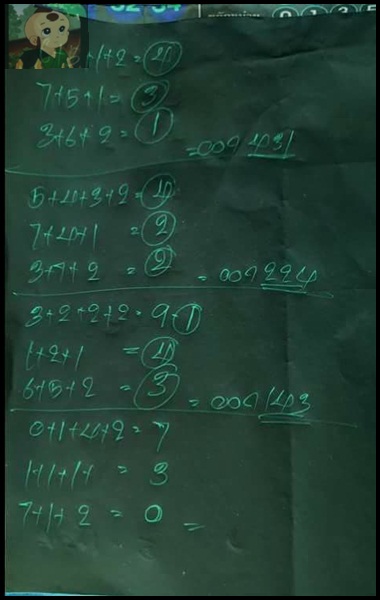 +1+2=4
7+5+1= 3
3+6+2= 1 =ออก 431
5+4+3+2=4
7+4+1 = 2
3+7+2 = 2 = ออก 224
3+2+2+2=9-1
1+2+1 = 4
6+5+2 = 3 = ออก 143
0+1+4+2=7
1+1+1+ = 3
7+1+2 = 0 =